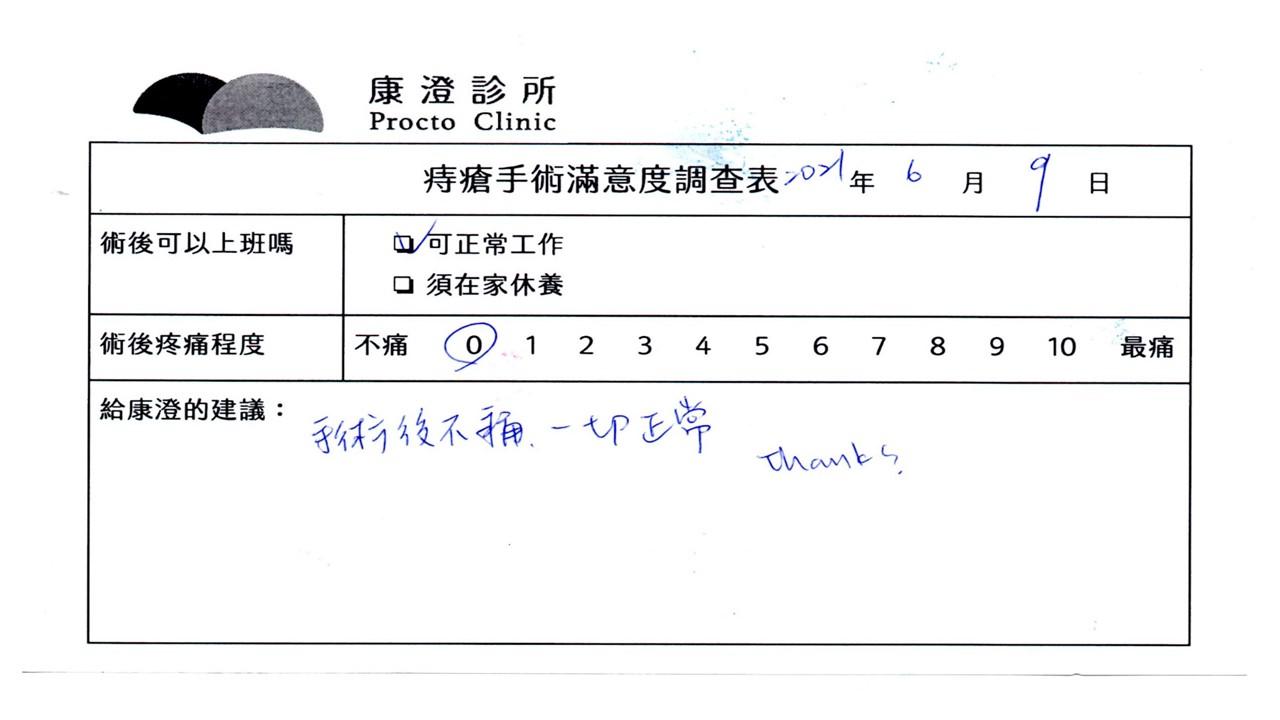 康澄診所
Procto Clinic
痔瘡手術滿意度調查表 2021 年 6 月 9 日
術後可以上班嗎
可正常工作
須在家休養
術後疼痛程度 不痛 0 1 2 3 4 5 6 7 8 9 10 最痛
給康澄的建議：
手術後不痛、一切正常
thanks.